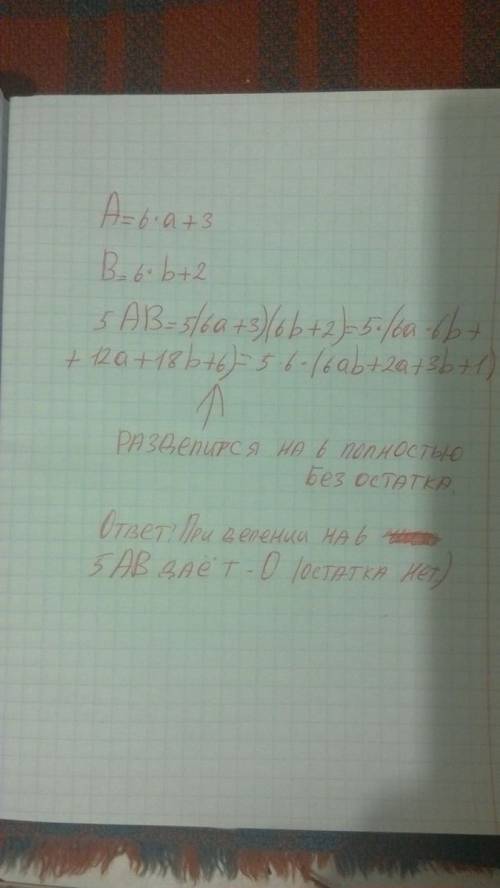 A=6·a+3
B=6·b+2
5AB=5(6a+3)(6b+2)=5·(6a·6b+
+12a+18b+6)=5·6·(6ab+2a+3b+1)
РАЗДЕЛИТСЯ НА 6 ПОЛНОСТЬЮ
БЕЗ ОСТАТКА.
Ответ: При делении на 6
5AB даёт - 0 (остатка нет)